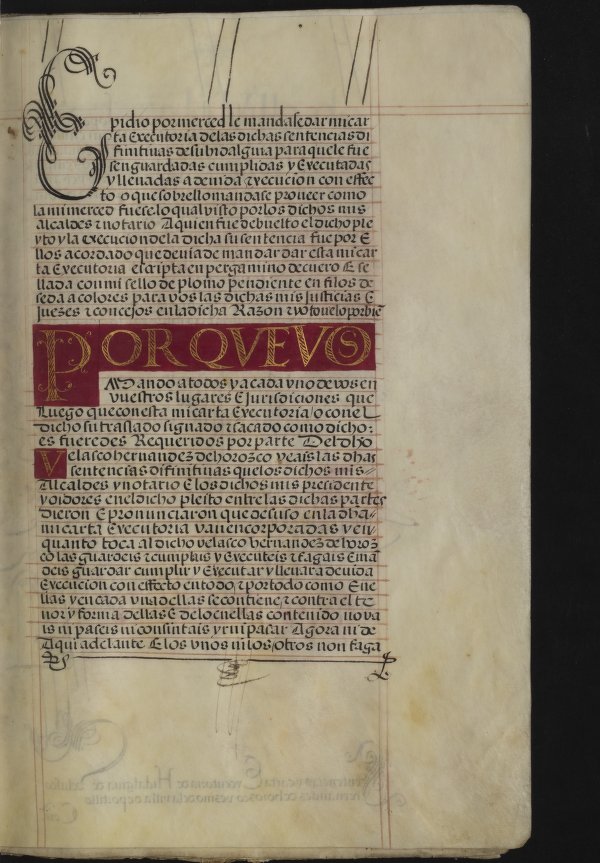 E pidio por merced le mandase dar mi car
ta Executoria de las dichas sentencias di
finitiuas de su hidalguia para que le fue
sen guardadas cumplidas y Executadas
y lleuadas a deuida execucion con effec
to o que sobrello mandase proueer como
la mi merced fuese lo qual visto por los dichos mis
alcaldes z notario A quien fue debuelto el dicho ple
yto y la execucion de la dicha su sentencia fue por E
llos acordado que deuia de mandar dar esta mi car
ta Executoria escripta en pergamino de cuero E se
llada con mi sello de plomo pendiente en filos de
seda a colores para vos las dichas mis justicias E
juezes z concejos en la dicha Razon z yo touelo por bie
PORQVE VOS
MAndo a todos y a cada vno de vos en
vuestros lugares E jurisdiciones que
luego que con esta mi carta Executoria / o con el
dicho su traslado signado z sacado como dicho :
es fueredes Requeridos por parte Del dho
Velasco hernandez de horozco veais las dhas
sentencias diffinitiuas que los dichos mis
Alcaldes y notario E los dichos mis presidente
y oidores en el dicho pleito entre las dichas partes
dieron E pronunciaron que de suso en la dha
mi carta Executoria van encorporadas y en
quanto toca al dicho velasco hernandez de horoz
co las guardeis z cumplais y Executeis z fagais E ma
deis guardar cumplir y Executar y lleuar a deuida
Execucion con effecto en todo z por todo como E ne
llas y en cada vna dellas se contiene z contra el te
nor y forma dellas E de lo en ellas contenido no va
is ni paseis ni consintais yr ni pasar Agora ni de
Aqui adelante E los vnos ni los / otros non faga